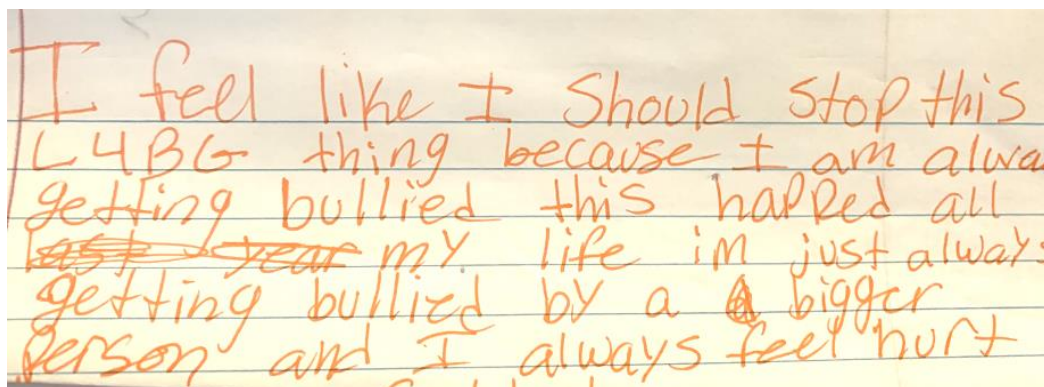 I feel like I should stop this
L4BG thing because I am alwa
getting bullied this happed all
last year my life im just always
getting bullied by a bigger
person and I always feel hurt